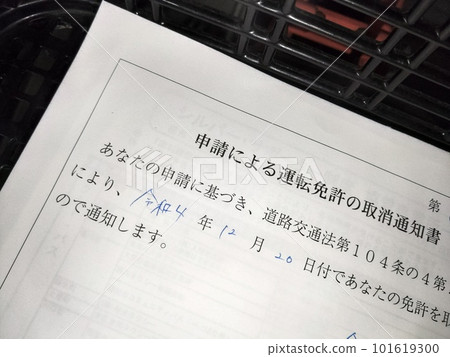 第
申請による運転免許の取消通知書
あなたの申請に基づき、道路交通法第104条の4第
により、令和4年12月20日付であなたの免許を取
ので通知します。
PIXTA
101619300